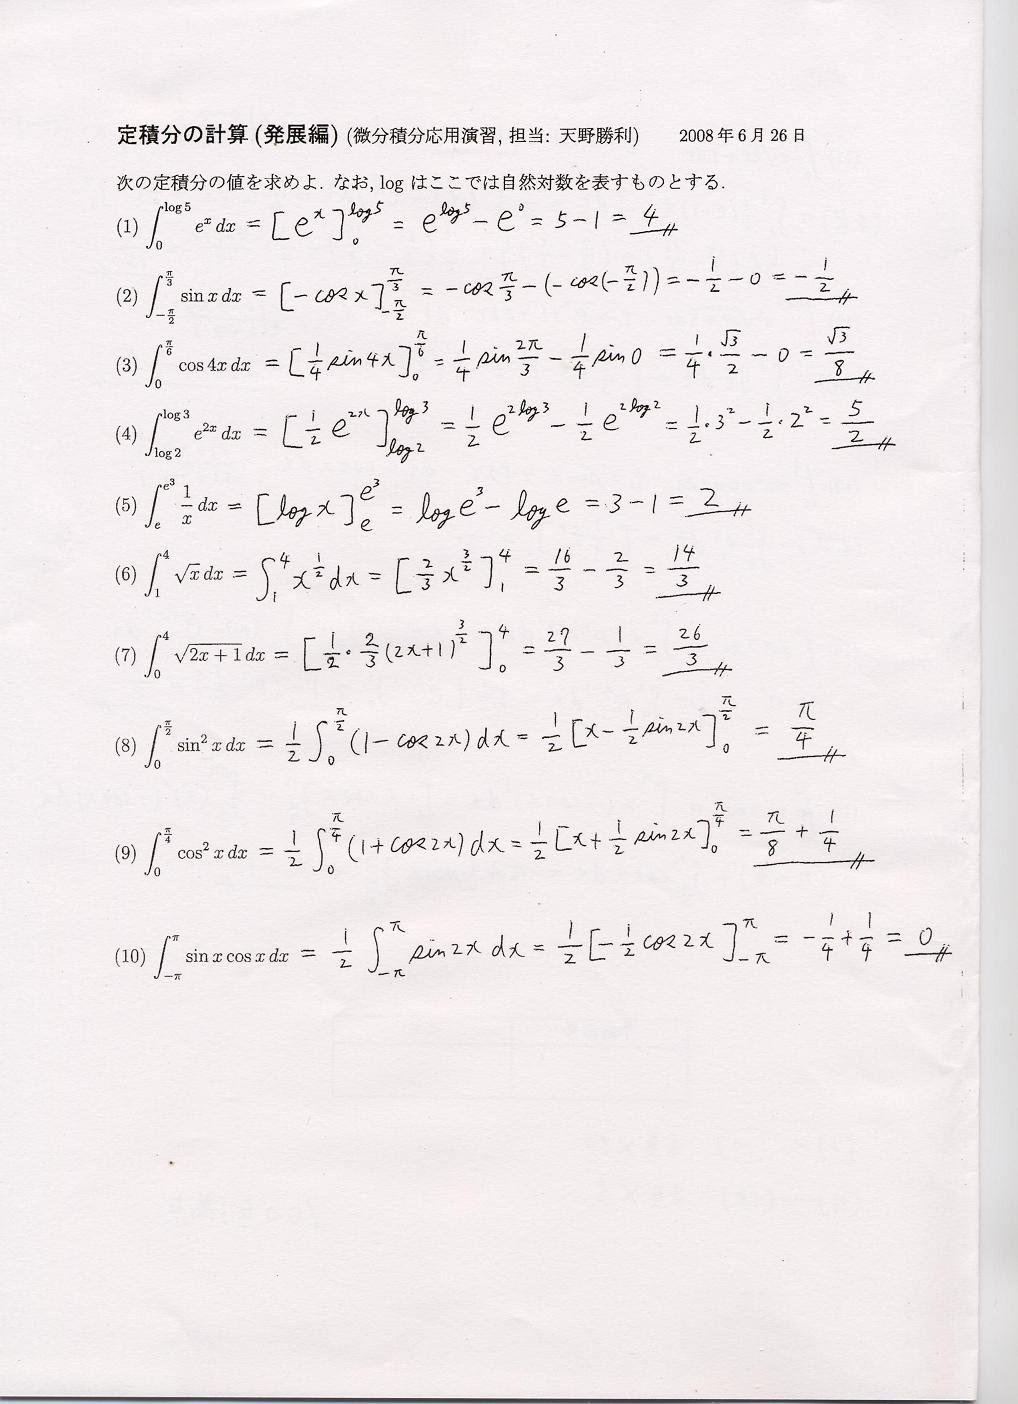 定積分の計算 (発展編) (微分積分応用演習, 担当: 天野勝利) 2008 年 6 月 26 日
次の定積分の値を求めよ. なお, log はここでは自然対数を表すものとする.
(1) ∫_0^{log 5} e^x dx = [e^x]_0^{log5} = e^{log5} − e^0 = 5 − 1 = 4
(2) ∫_{−π/2}^{π/3} sin x dx = [−cos x]_{−π/2}^{π/3} = −cos π/3 − (−cos(−π/2)) = −1/2 − 0 = −1/2
(3) ∫_0^{π/6} cos 4x dx = [1/4 sin4x]_0^{π/6} = 1/4 sin 2π/3 − 1/4 sin 0 = 1/4 · √3/2 − 0 = √3/8
(4) ∫_{log 2}^{log 3} e^{2x} dx = [1/2 e^{2x}]_{log2}^{log3} = 1/2 e^{2log3} − 1/2 e^{2log2} = 1/2 · 3^2 − 1/2 · 2^2 = 5/2
(5) ∫_e^{e^3} 1/x dx = [log x]_e^{e^3} = log e^3 − log e = 3 − 1 = 2
(6) ∫_1^4 √x dx = ∫_1^4 x^{1/2} dx = [2/3 x^{3/2}]_1^4 = 16/3 − 2/3 = 14/3
(7) ∫_0^4 √(2x + 1) dx = [1/2 · 2/3 (2x+1)^{3/2}]_0^4 = 27/3 − 1/3 = 26/3
(8) ∫_0^{π/2} sin^2 x dx = 1/2 ∫_0^{π/2} (1 − cos 2x) dx = 1/2 [x − 1/2 sin2x]_0^{π/2} = π/4
(9) ∫_0^{π/4} cos^2 x dx = 1/2 ∫_0^{π/4} (1 + cos 2x) dx = 1/2 [x + 1/2 sin2x]_0^{π/4} = π/8 + 1/4
(10) ∫_{−π}^{π} sin x cos x dx = 1/2 ∫_{−π}^{π} sin2x dx = 1/2 [−1/2 cos 2x]_{−π}^{π} = −1/4 + 1/4 = 0